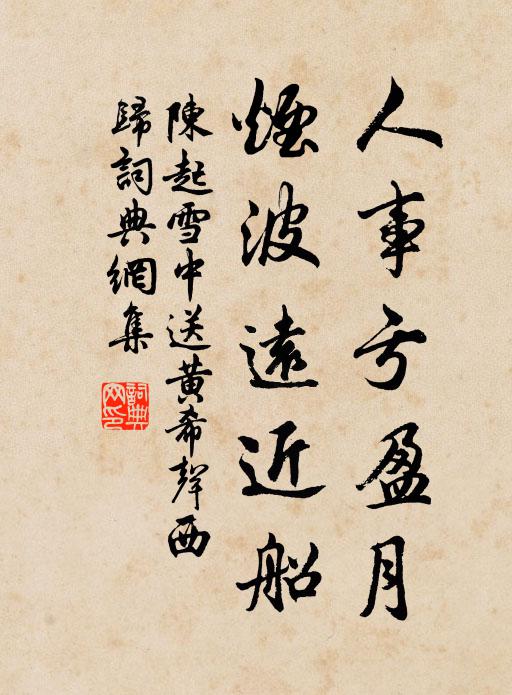 人事亏盈月
煙波遠近船
陳起雪中送黄希聲西
歸詞典網集
詞典
网印